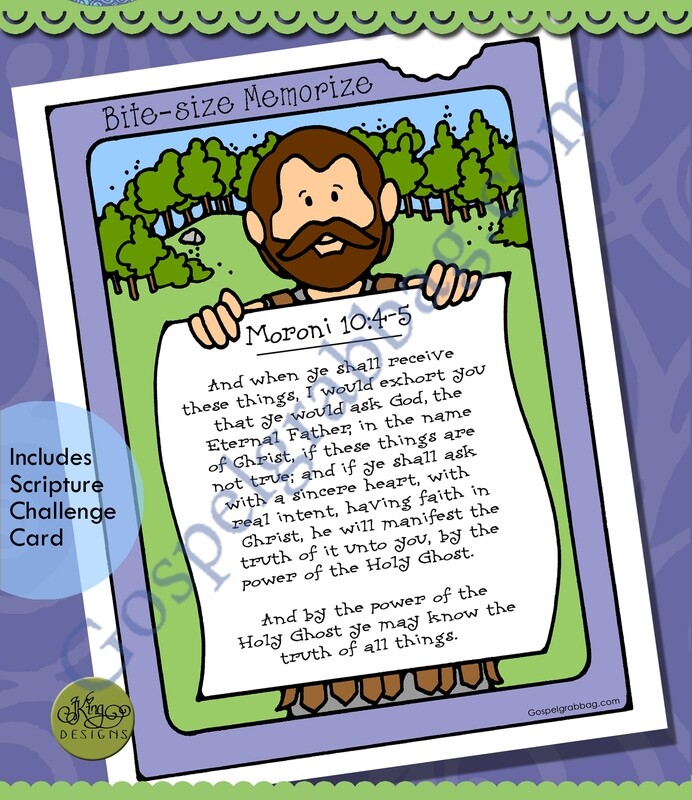 Bite-size Memorize
Moroni 10:4-5
And when ye shall receive
these things, I would exhort you
that ye would ask God, the
Eternal Father, in the name
of Christ, if these things are
not true; and if ye shall ask
with a sincere heart, with
real intent, having faith in
Christ, he will manifest the
truth of it unto you, by the
power of the Holy Ghost.
And by the power of the
Holy Ghost ye may know the
truth of all things.
Includes
Scripture
Challenge
Card
Gospelgrabbag.com
JKing
DESIGNS
Gospelgrabbag.com